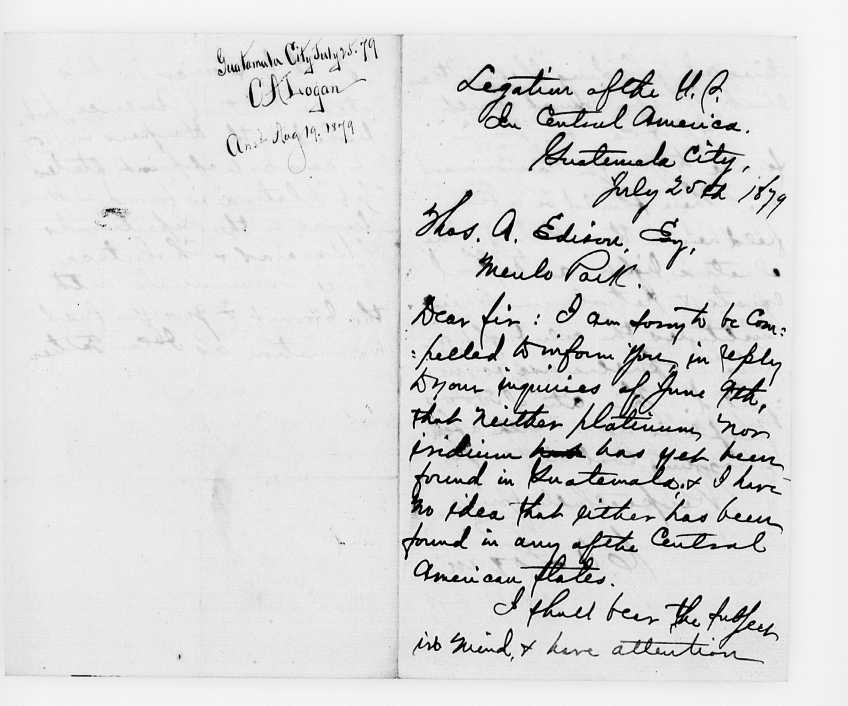 Guatamala City July 25. 79
C A Logan
Ansd Aug 19. 1879
Legation of the U.S.
In Central America.
Guatemala City,
July 25th 1879
Thos. A. Edison, Esq,
Menlo Park.
Dear Sir: I am sorry to be com=
=pelled to inform you, in reply
to your inquiries of June 9th,
that neither platinum, nor
iridium has yet been
found in Guatemala, & I have
no idea that either has been
found in any of the Central
American States.
I shall bear the subject
in mind, & have attention